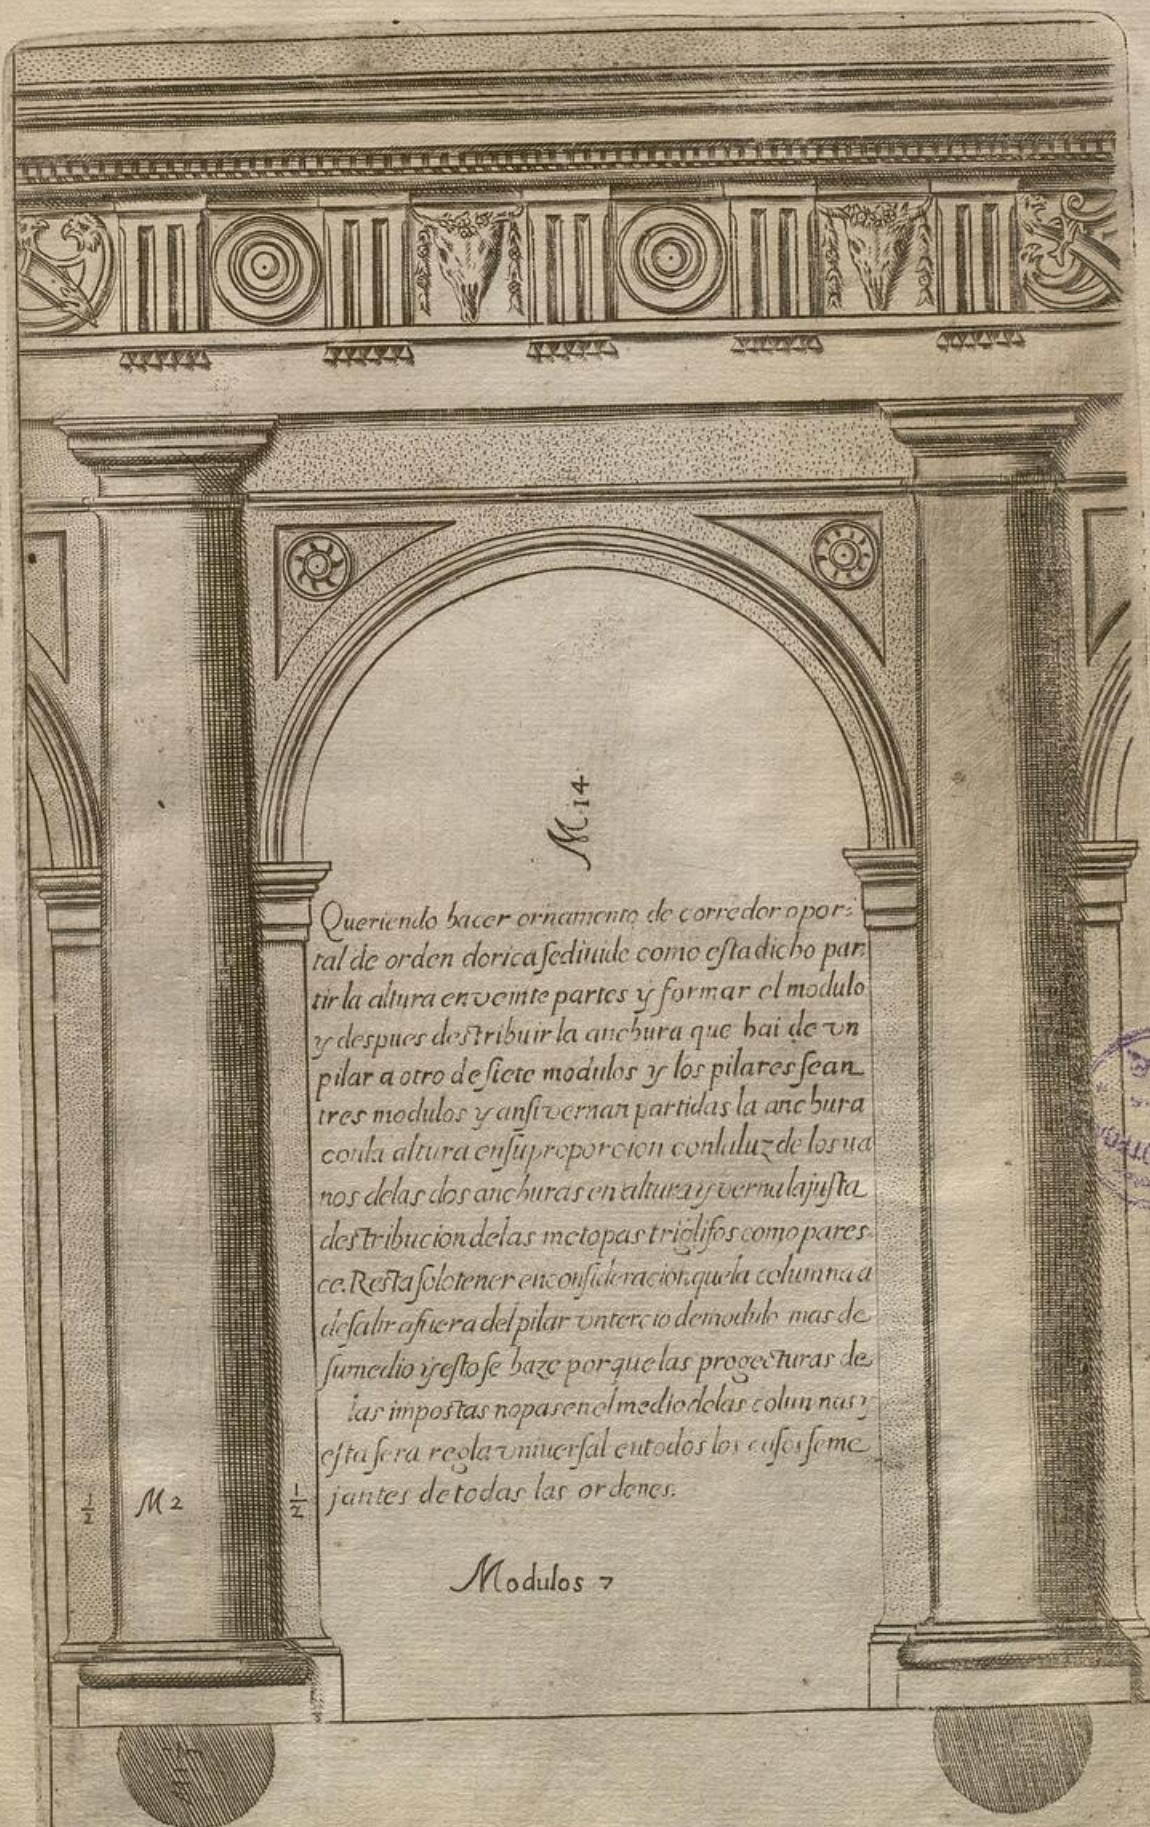 M. 14
Queriendo hacer ornamento de corredor o por:
tal de orden dorica se diuide como esta dicho par
tir la altura en veinte partes y formar el modulo
y despues destribuir la anchura que hai de vn
pilar a otro de siete modulos y los pilares sean
tres modulos y ansi vernan partidas la anchura
con la altura en su proporcion con la luz de los ua
nos de las dos anchuras en altura y verna la justa
destribucion de las metopas triglifos como pares
ce. Resta solo tener en consideracion que la columna a
de salir a fuera del pilar vn tercio de modulo mas de
su medio y esto se haze porque las progecturas de
las impostas no pasen el medio de las colunnas y
esta sera regla vniuersal en todos los casos seme
jantes de todas las ordenes.
1/2 M 2 1/2
Modulos 7